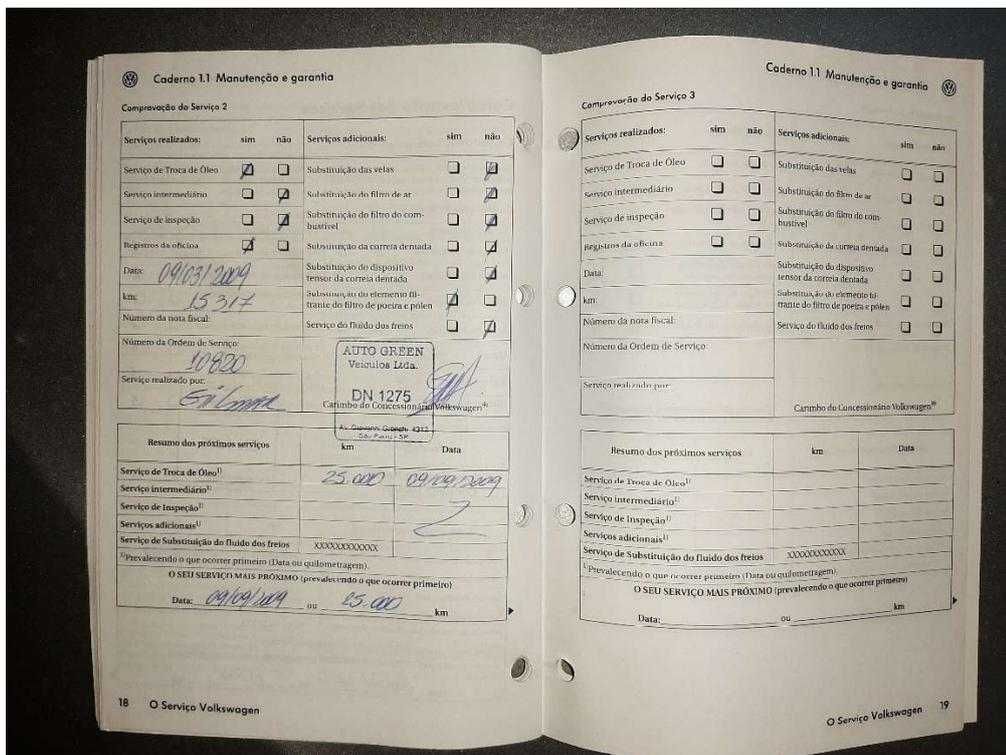 Caderno 1.1 Manutenção e garantia
Comprovação do Serviço 2
Serviços realizados: sim não Serviços adicionais: sim não
Serviço de Troca de Óleo Substituição das velas
Serviço intermediário Substituição do filtro de ar
Serviço de inspeção Substituição do filtro do com-
bustível
Registros da oficina Substituição da correia dentada
Data: 09/03/2009 Substituição do dispositivo
tensor da correia dentada
km: 15317 Substituição do elemento fil-
trante do filtro de poeira e pólen
Número da nota fiscal: Serviço do fluido dos freios
Número da Ordem de Serviço:
10820
Serviço realizado por:
Gilmar
AUTO GREEN
Veículos Ltda.
DN 1275
Carimbo do Concessionário Volkswagen
4312
São Paulo - SP
Resumo dos próximos serviços km Data
Serviço de Troca de Óleo1) 25.000 09/09/2009
Serviço intermediário1)
Serviço de Inspeção1)
Serviços adicionais1)
Serviço de Substituição do fluido dos freios XXXXXXXXXXXX
1)Prevalecendo o que ocorrer primeiro (Data ou quilometragem).
O SEU SERVIÇO MAIS PRÓXIMO (prevalecendo o que ocorrer primeiro)
Data: 09/09/2009 ou 25.000 km
18 O Serviço Volkswagen
Caderno 1.1 Manutenção e garantia
Comprovação do Serviço 3
Serviços realizados: sim não Serviços adicionais: sim não
Serviço de Troca de Óleo Substituição das velas
Serviço intermediário Substituição do filtro de ar
Serviço de inspeção Substituição do filtro do com-
bustível
Registros da oficina Substituição da correia dentada
Data: Substituição do dispositivo
tensor da correia dentada
km: Substituição do elemento fil-
trante do filtro de poeira e pólen
Número da nota fiscal: Serviço do fluido dos freios
Número da Ordem de Serviço:
Serviço realizado por:
Carimbo do Concessionário Volkswagen
Resumo dos próximos serviços km Data
Serviço de Troca de Óleo1)
Serviço intermediário1)
Serviço de Inspeção1)
Serviços adicionais1)
Serviço de Substituição do fluido dos freios XXXXXXXXXXXX
1)Prevalecendo o que ocorrer primeiro (Data ou quilometragem).
O SEU SERVIÇO MAIS PRÓXIMO (prevalecendo o que ocorrer primeiro)
Data: ou km
O Serviço Volkswagen 19